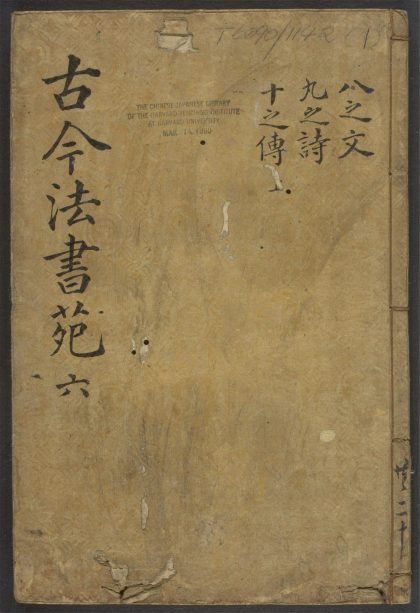 古今法書苑 六
八之文
九之詩
十之傳
THE CHINESE-JAPANESE LIBRARY
OF THE HARVARD-YENCHING INSTITUTE
AT HARVARD UNIVERSITY
MAR 14 1960
二十